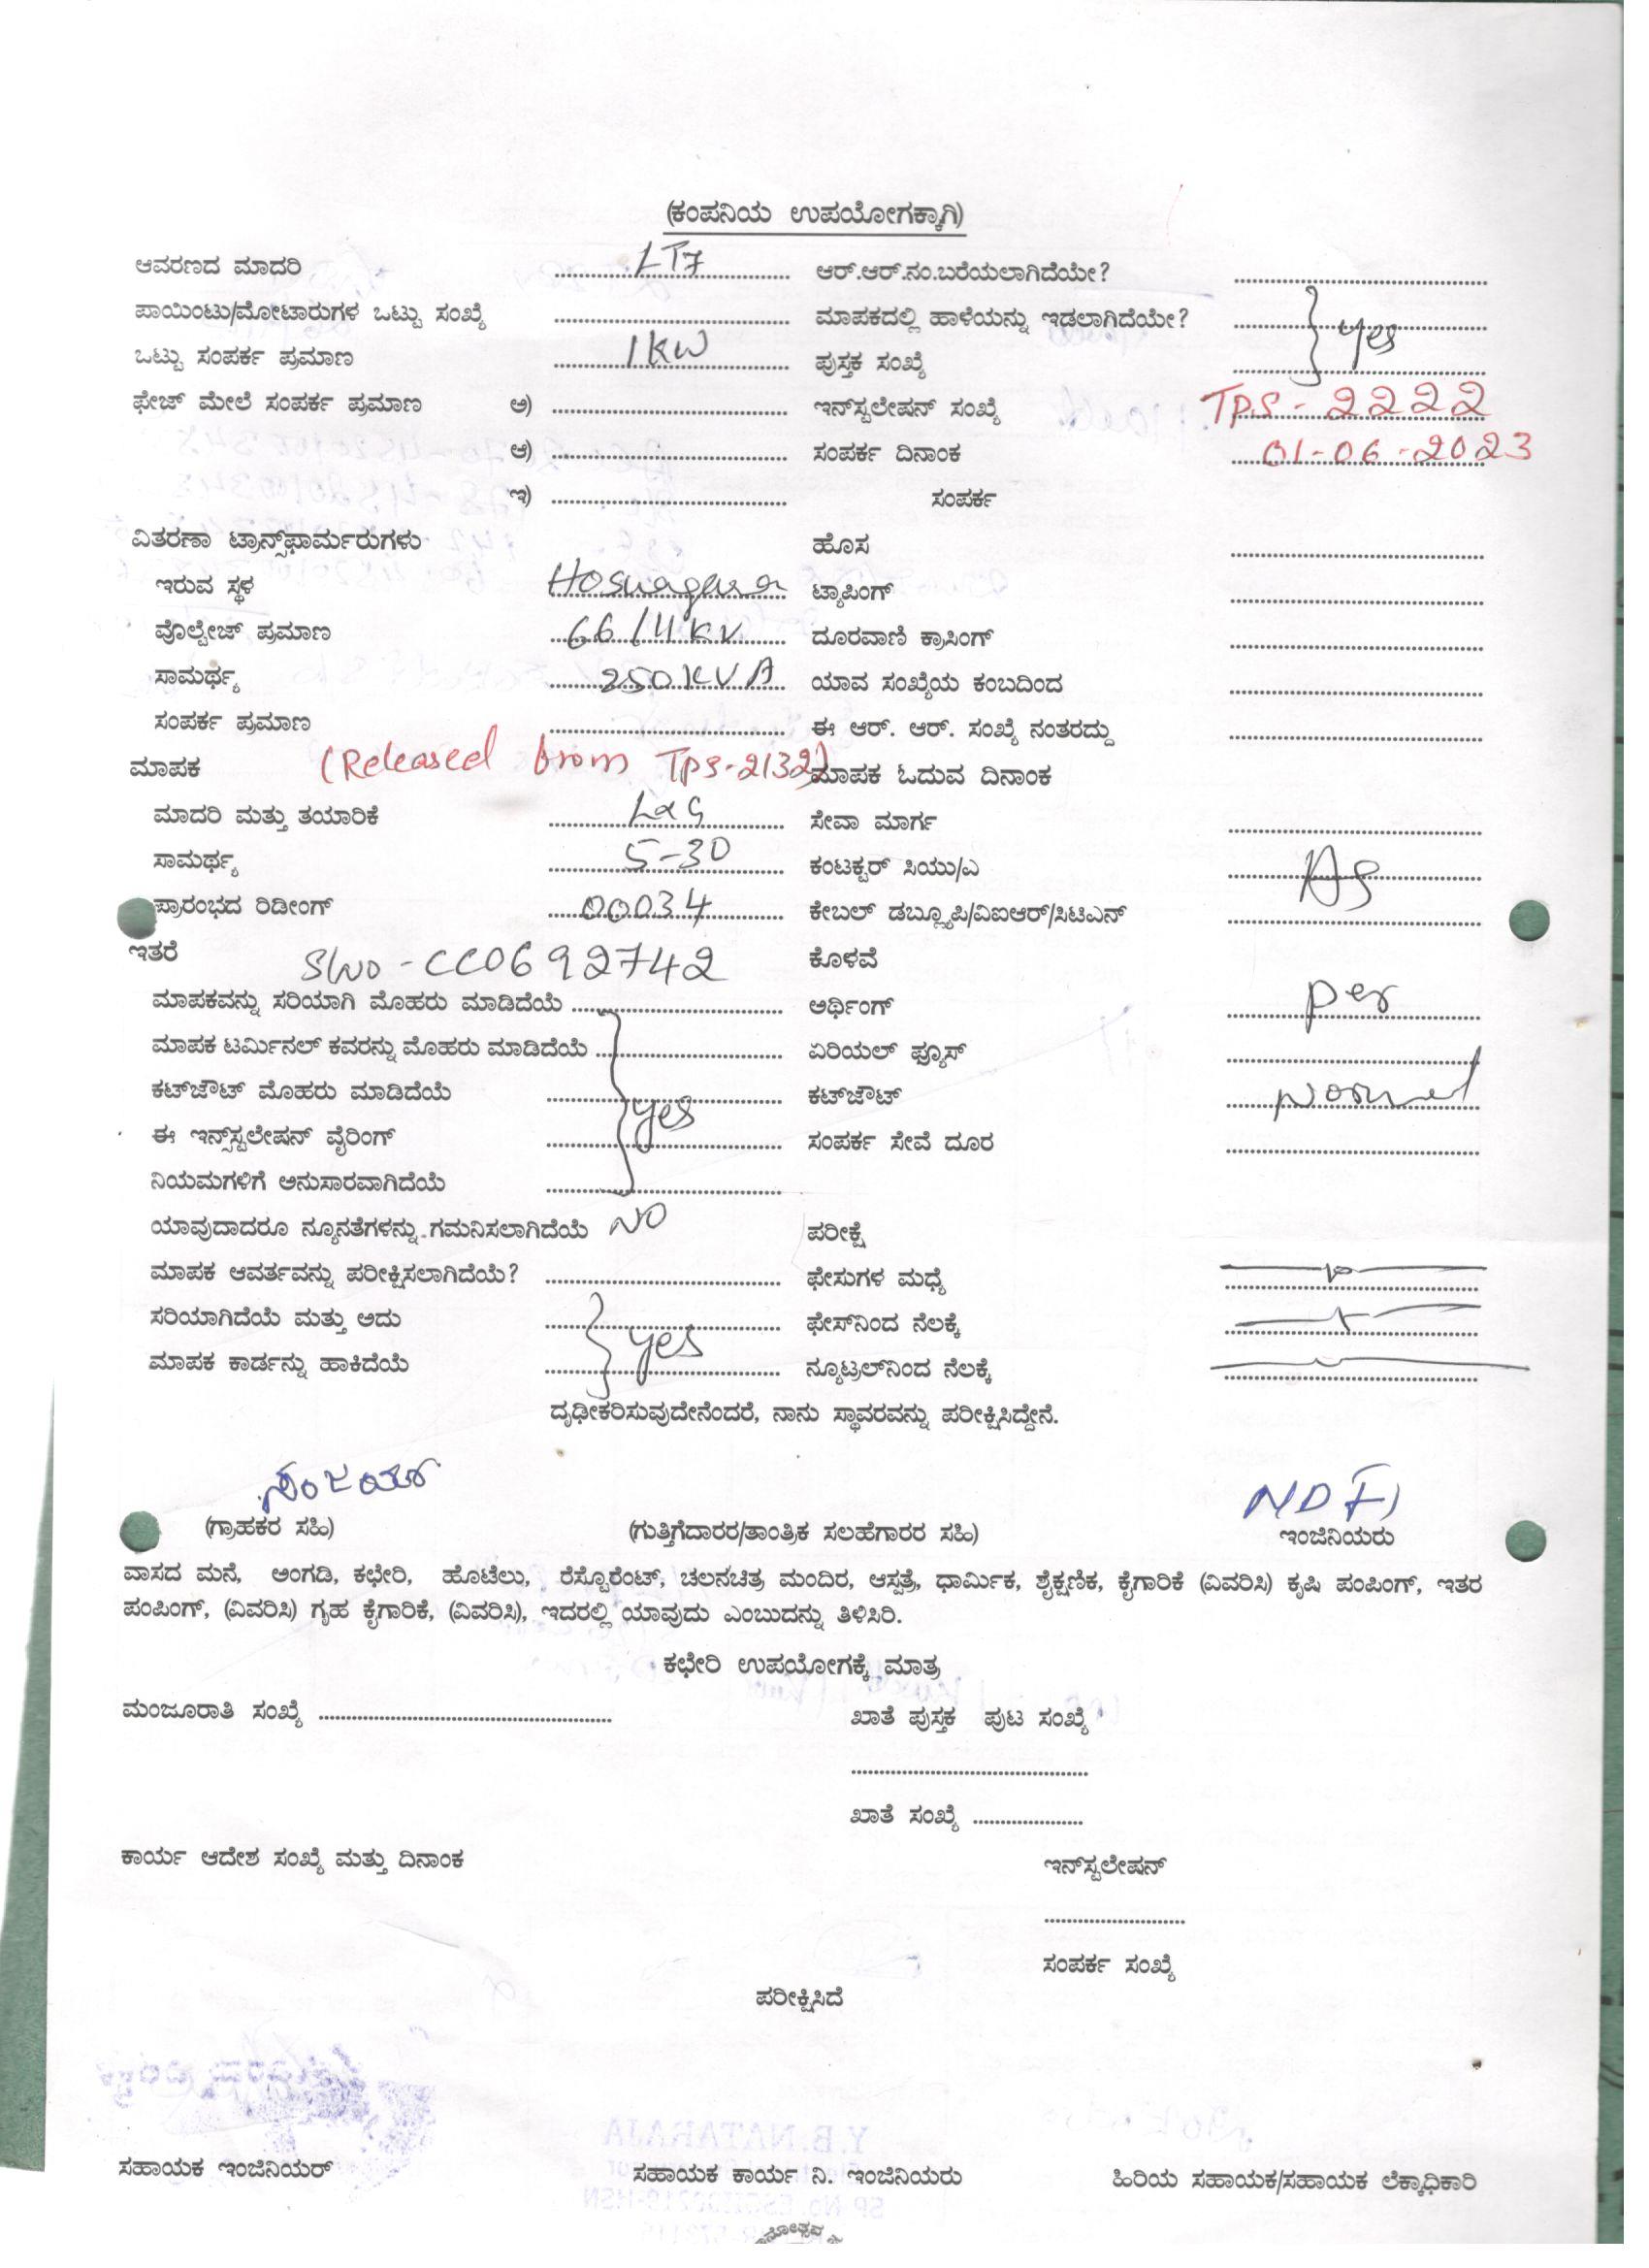 (ಕಂಪನಿಯ ಉಪಯೋಗಕ್ಕಾಗಿ)
ಆವರಣದ ಮಾದರಿ LT7 ಆರ್.ಆರ್.ನಂ.ಬರೆಯಲಾಗಿದೆಯೇ?
ಪಾಯಿಂಟು/ಮೋಟಾರುಗಳ ಒಟ್ಟು ಸಂಖ್ಯೆ ಮಾಪಕದಲ್ಲಿ ಹಾಳೆಯನ್ನು ಇಡಲಾಗಿದೆಯೇ? yes
ಒಟ್ಟು ಸಂಪರ್ಕ ಪ್ರಮಾಣ 1KW ಪುಸ್ತಕ ಸಂಖ್ಯೆ
ಫೇಜ್ ಮೇಲೆ ಸಂಪರ್ಕ ಪ್ರಮಾಣ ಅ) ಇನ್‌ಸ್ಟಲೇಷನ್ ಸಂಖ್ಯೆ TPS-2222
ಆ) ಸಂಪರ್ಕ ದಿನಾಂಕ 01-06-2023
ಇ) ಸಂಪರ್ಕ
ವಿತರಣಾ ಟ್ರಾನ್ಸ್‌ಫಾರ್ಮರುಗಳು ಹೊಸ
ಇರುವ ಸ್ಥಳ ಟ್ಯಾಪಿಂಗ್
ವೊಲ್ಟೇಜ್ ಪ್ರಮಾಣ 66/11KV ದೂರವಾಣಿ ಕ್ರಾಸಿಂಗ್
ಸಾಮರ್ಥ್ಯ 250KVA ಯಾವ ಸಂಖ್ಯೆಯ ಕಂಬದಿಂದ
ಸಂಪರ್ಕ ಪ್ರಮಾಣ ಈ ಆರ್. ಆರ್. ಸಂಖ್ಯೆ ನಂತರದ್ದು
ಮಾಪಕ (Released from TPS-2132) ಮಾಪಕ ಓದುವ ದಿನಾಂಕ
ಮಾದರಿ ಮತ್ತು ತಯಾರಿಕೆ L&G ಸೇವಾ ಮಾರ್ಗ
ಸಾಮರ್ಥ್ಯ 5-30 ಕಂಟಕ್ಟರ್ ಸಿಯು/ಎ As
ಪ್ರಾರಂಭದ ರಿಡೀಂಗ್ 00034 ಕೇಬಲ್ ಡಬ್ಲ್ಯೂಪಿ/ವಿಐಆರ್/ಸಿಟಿಎನ್
ಇತರೆ Slno-CC0692742 ಕೊಳವೆ
ಮಾಪಕವನ್ನು ಸರಿಯಾಗಿ ಮೊಹರು ಮಾಡಿದೆಯೆ ಅರ್ಥಿಂಗ್ per
ಮಾಪಕ ಟರ್ಮಿನಲ್ ಕವರನ್ನು ಮೊಹರು ಮಾಡಿದೆಯೆ ಏರಿಯಲ್ ಫ್ಯೂಸ್
ಕಟ್‌ಜೌಟ್ ಮೊಹರು ಮಾಡಿದೆಯೆ yes ಕಟ್‌ಜೌಟ್ normal
ಈ ಇನ್ಸ್‌ಸ್ಟಲೇಷನ್ ವೈರಿಂಗ್ ಸಂಪರ್ಕ ಸೇವೆ ದೂರ
ನಿಯಮಗಳಿಗೆ ಅನುಸಾರವಾಗಿದೆಯೆ
ಯಾವುದಾದರೂ ನ್ಯೂನತೆಗಳನ್ನು ಗಮನಿಸಲಾಗಿದೆಯೆ NO ಪರೀಕ್ಷೆ
ಮಾಪಕ ಆವರ್ತವನ್ನು ಪರೀಕ್ಷಿಸಲಾಗಿದೆಯೆ? ಫೇಸುಗಳ ಮಧ್ಯೆ
ಸರಿಯಾಗಿದೆಯೆ ಮತ್ತು ಅದು yes ಫೇಸ್‌ನಿಂದ ನೆಲಕ್ಕೆ
ಮಾಪಕ ಕಾರ್ಡನ್ನು ಹಾಕಿದೆಯೆ ನ್ಯೂಟ್ರಲ್‌ನಿಂದ ನೆಲಕ್ಕೆ
ದೃಢೀಕರಿಸುವುದೇನೆಂದರೆ, ನಾನು ಸ್ಥಾವರವನ್ನು ಪರೀಕ್ಷಿಸಿದ್ದೇನೆ.
ಸಂಜಯ್
(ಗ್ರಾಹಕರ ಸಹಿ) (ಗುತ್ತಿಗೆದಾರರ/ತಾಂತ್ರಿಕ ಸಲಹೆಗಾರರ ಸಹಿ) ಇಂಜಿನಿಯರು
ವಾಸದ ಮನೆ, ಅಂಗಡಿ, ಕಛೇರಿ, ಹೊಟೆಲು, ರೆಸ್ಟೊರೆಂಟ್, ಚಲನಚಿತ್ರ ಮಂದಿರ, ಆಸ್ಪತ್ರೆ, ಧಾರ್ಮಿಕ, ಶೈಕ್ಷಣಿಕ, ಕೈಗಾರಿಕೆ (ವಿವರಿಸಿ) ಕೃಷಿ ಪಂಪಿಂಗ್, ಇತರ
ಪಂಪಿಂಗ್, (ವಿವರಿಸಿ) ಗೃಹ ಕೈಗಾರಿಕೆ, (ವಿವರಿಸಿ), ಇದರಲ್ಲಿ ಯಾವುದು ಎಂಬುದನ್ನು ತಿಳಿಸಿರಿ.
ಕಛೇರಿ ಉಪಯೋಗಕ್ಕೆ ಮಾತ್ರ
ಮಂಜೂರಾತಿ ಸಂಖ್ಯೆ ಖಾತೆ ಪುಸ್ತಕ ಪುಟ ಸಂಖ್ಯೆ
ಖಾತೆ ಸಂಖ್ಯೆ
ಕಾರ್ಯ ಆದೇಶ ಸಂಖ್ಯೆ ಮತ್ತು ದಿನಾಂಕ ಇನ್‌ಸ್ಟಲೇಷನ್
ಸಂಪರ್ಕ ಸಂಖ್ಯೆ
ಪರೀಕ್ಷಿಸಿದೆ
ಸಹಾಯಕ ಇಂಜಿನಿಯರ್ ಸಹಾಯಕ ಕಾರ್ಯ ನಿ. ಇಂಜಿನಿಯರು ಹಿರಿಯ ಸಹಾಯಕ/ಸಹಾಯಕ ಲೆಕ್ಕಾಧಿಕಾರಿ